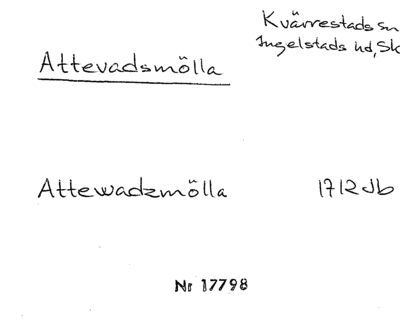 Kvärrestads sn
Ingelstads hd, Sk
Attevadsmölla
Attewadzmölla 1712 Jb
Nr 17798